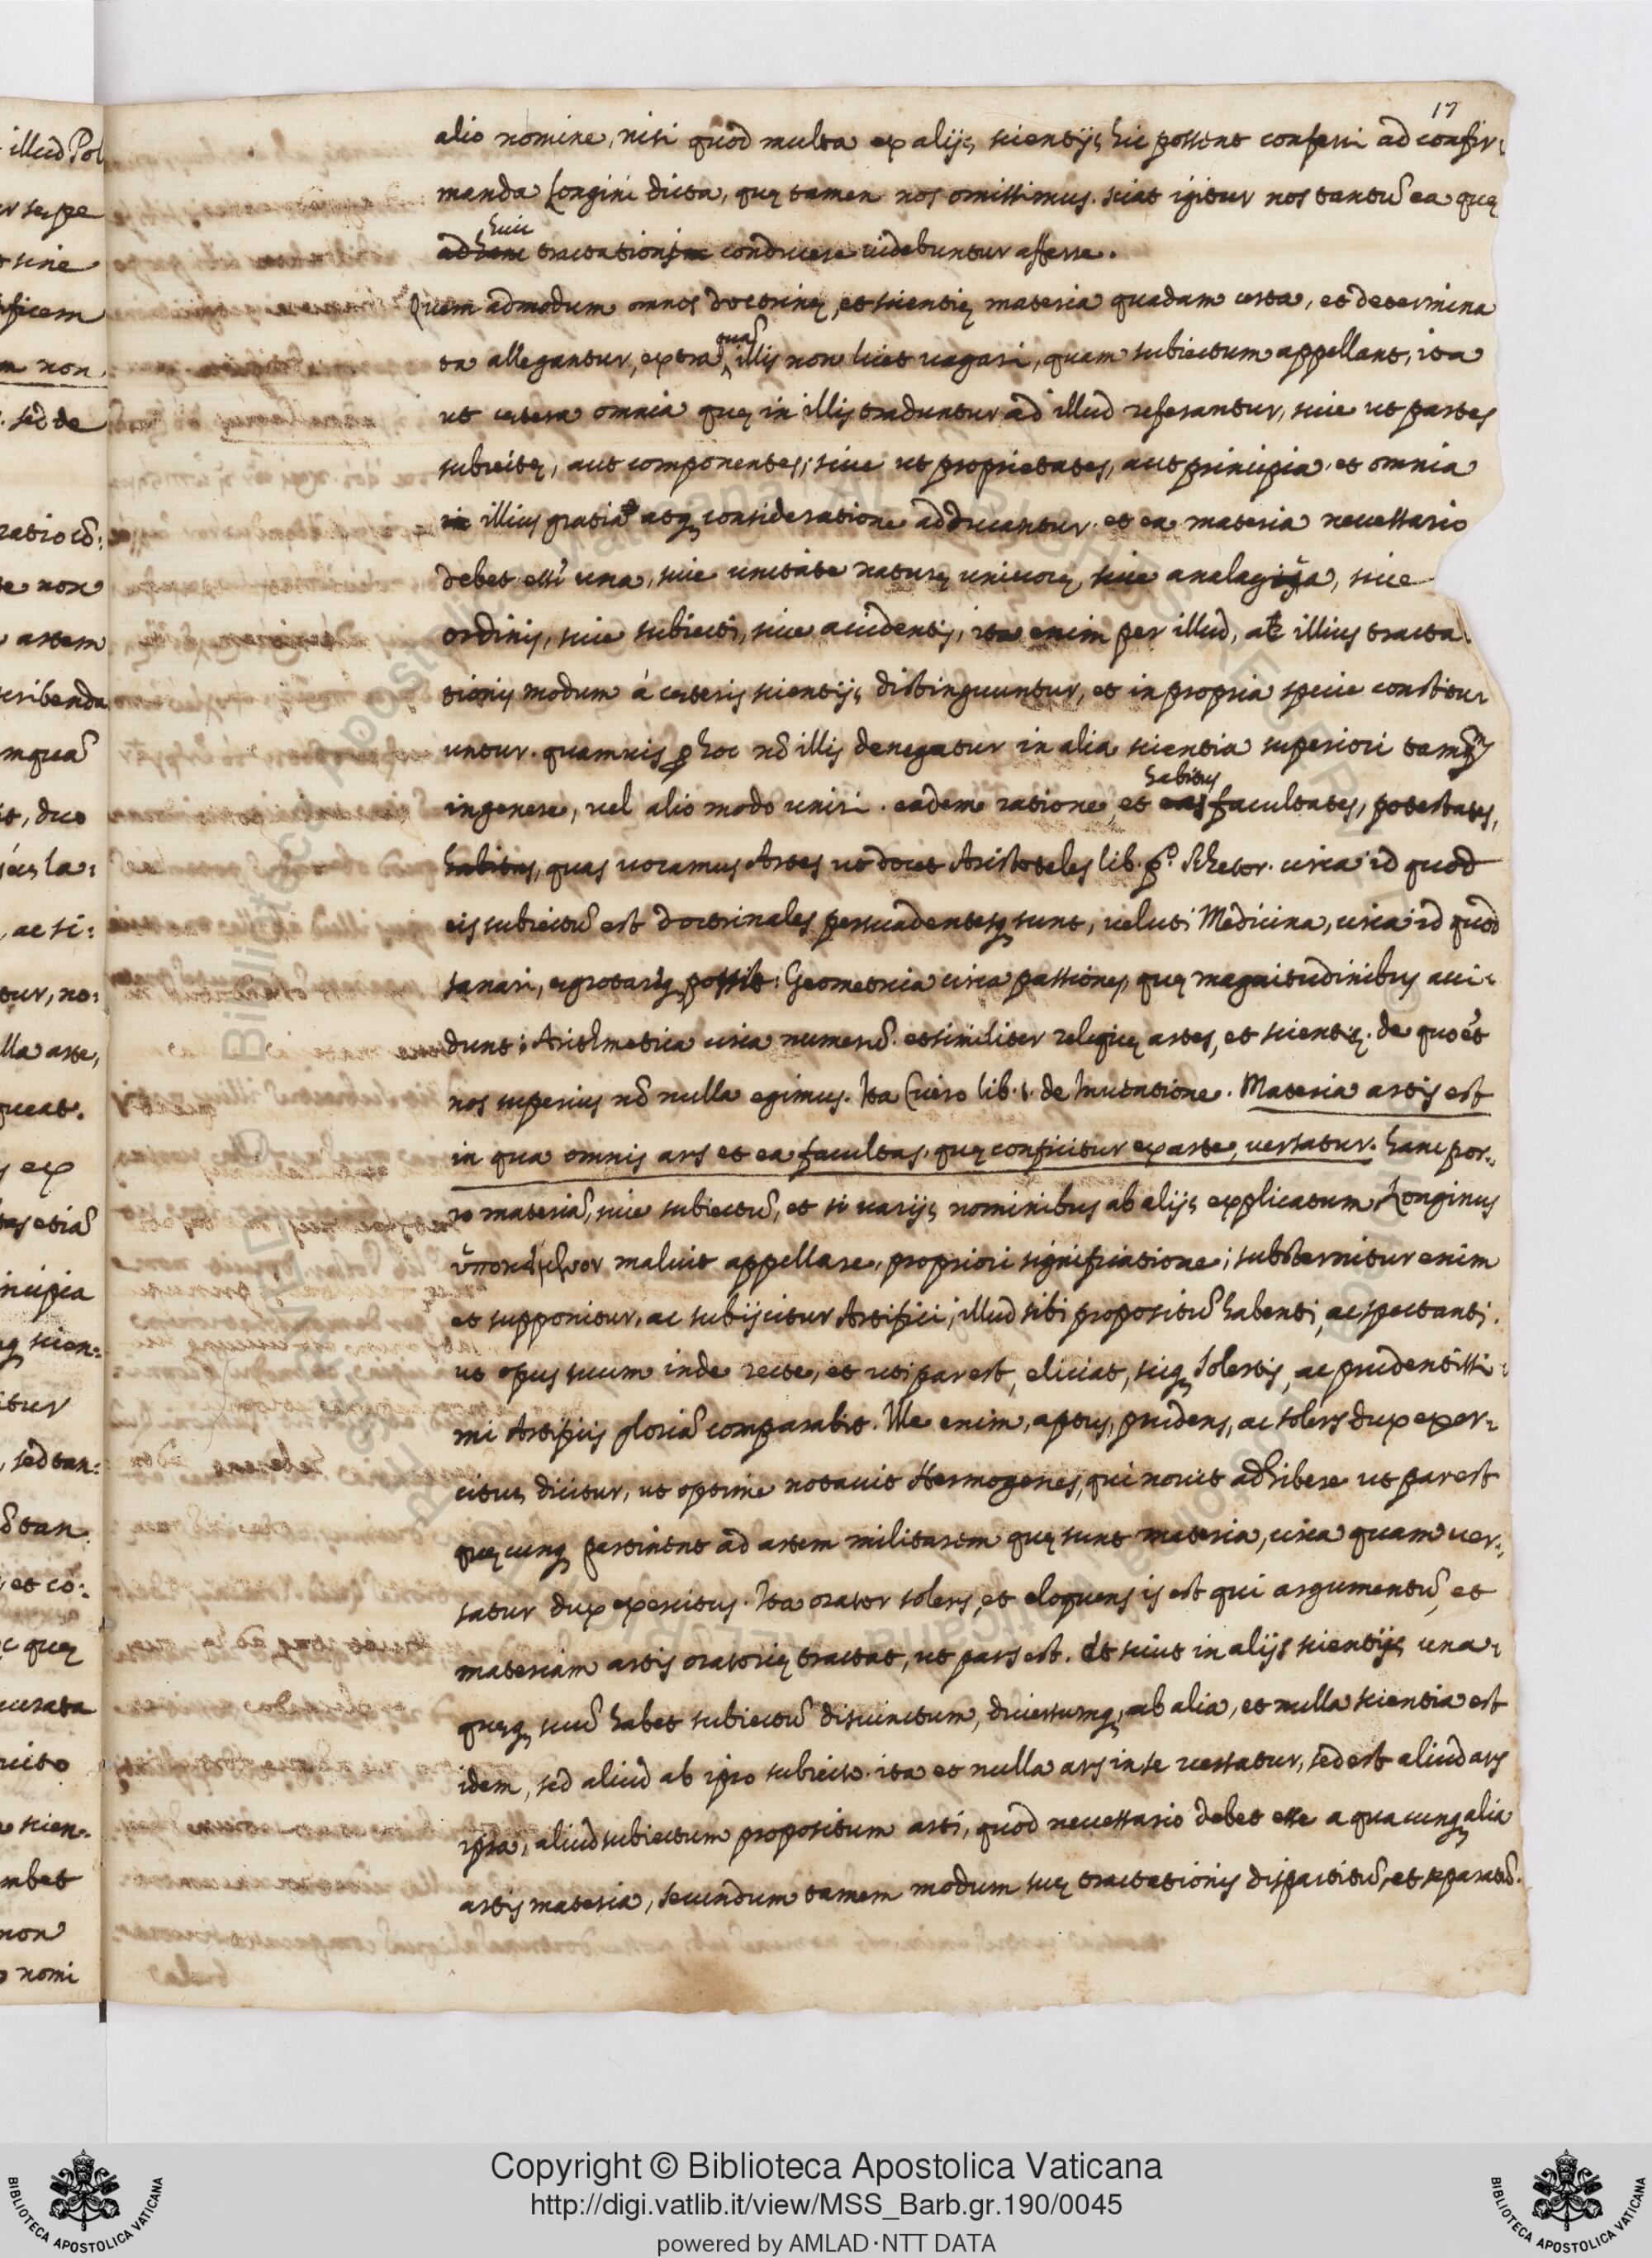 17
alio nomine, nisi quod multa ex alijs scientijs hic possent conferri ad confir-
manda Longini dicta, quę tamen nos omittimus. sciat igitur nos tantū ea quę
huic
ad hanc tractationi conducere uidebuntur afferre.
Quem admodum omnes doctrinę, et scientię materia quadam certa, et determina
quā
ta allegantur, extra illis non licet uagari, quam subiectum appellant, ita
ut cętera omnia quę in illis traduntur ad illud referantur, siue ut partes
subiectę, aut componentes; siue ut proprietates, aut principia, et omnia
in illius gratia atq; consideratione adducantur. et ea materia necessario
debet esse una, siue unitate naturę uniuocę, siue analogia, siue
ordinis, siue subiecti, siue accidentis, ita enim per illud, atq illius tracta-
tionis modum à cęteris scientijs distinguuntur, et in propria specie constitu-
untur. quamuis ꝑ hoc nō illis denegatur in alia scientia superiori tamq̃
habitus
in genere, uel alio modo uniri. eadem ratione, et eas facultates, potestates,
habitus, quas uocamus Artes ut docet Aristoteles lib. p.º Rhetor. circa id quod
eis subiectū est doctrinales persuadentesq; sunt, ueluti Medicina, circa id quod
sanari, ęgrotariq; possit: Geometria circa passiones, quę magnitudinibus acci-
dunt: Arithmetica circa numerū. et similiter reliquę artes, et scientię. de quo et
nos superius nō nulla egimus. Ita Cicero lib. 1. de Inuentione. Materia artis est
in qua omnis ars et ea facultas, quę conficitur ex arte, uersatur. hanc por-
ro materiā, siue subiectū, et si uarijs nominibus ab alijs explicatum Longinus
ὑποκείμενον maluit appellare, propriori significatione; substernitur enim
et supponitur, ac subijcitur Artifici, illud sibi propositū habenti, ac spectanti,
ut opus suum inde recte, et uti par est, eliciat, sicq; solertis, ac prudentissi-
mi Artificis gloriā comparabit. Ille enim, aptus, prudens, ac solers dux exer-
citus dicitur, ut optime notauit Hermogenes, qui nouit adhibere ut par est
quęcunq; pertinent ad artem militarem quę sunt materia, circa quam uer-
satur dux exercitus. Ita orator solers, et eloquens is est qui argumentū, et
materiam artis oratorię tractat, ut par est. Et sicut in alijs scientijs una-
quęq; suū habet subiectū disiunctum, diuersumq; ab alia, et nulla scientia est
idem, sed aliud ab ipso subiecto. ita et nulla ars in se uersatur, sed est aliud ars
ipsa, aliud subiectum propositum arti, quod necessario debet esse a quacunq; alia
artis materia, secundum tamen modum suę tractationis dispartitū, et separatū.
Copyright © Biblioteca Apostolica Vaticana
http://digi.vatlib.it/view/MSS_Barb.gr.190/0045
powered by AMLAD·NTT DATA
BIBLIOTECA APOSTOLICA VATICANA
BIBLIOTECA APOSTOLICA VATICANA